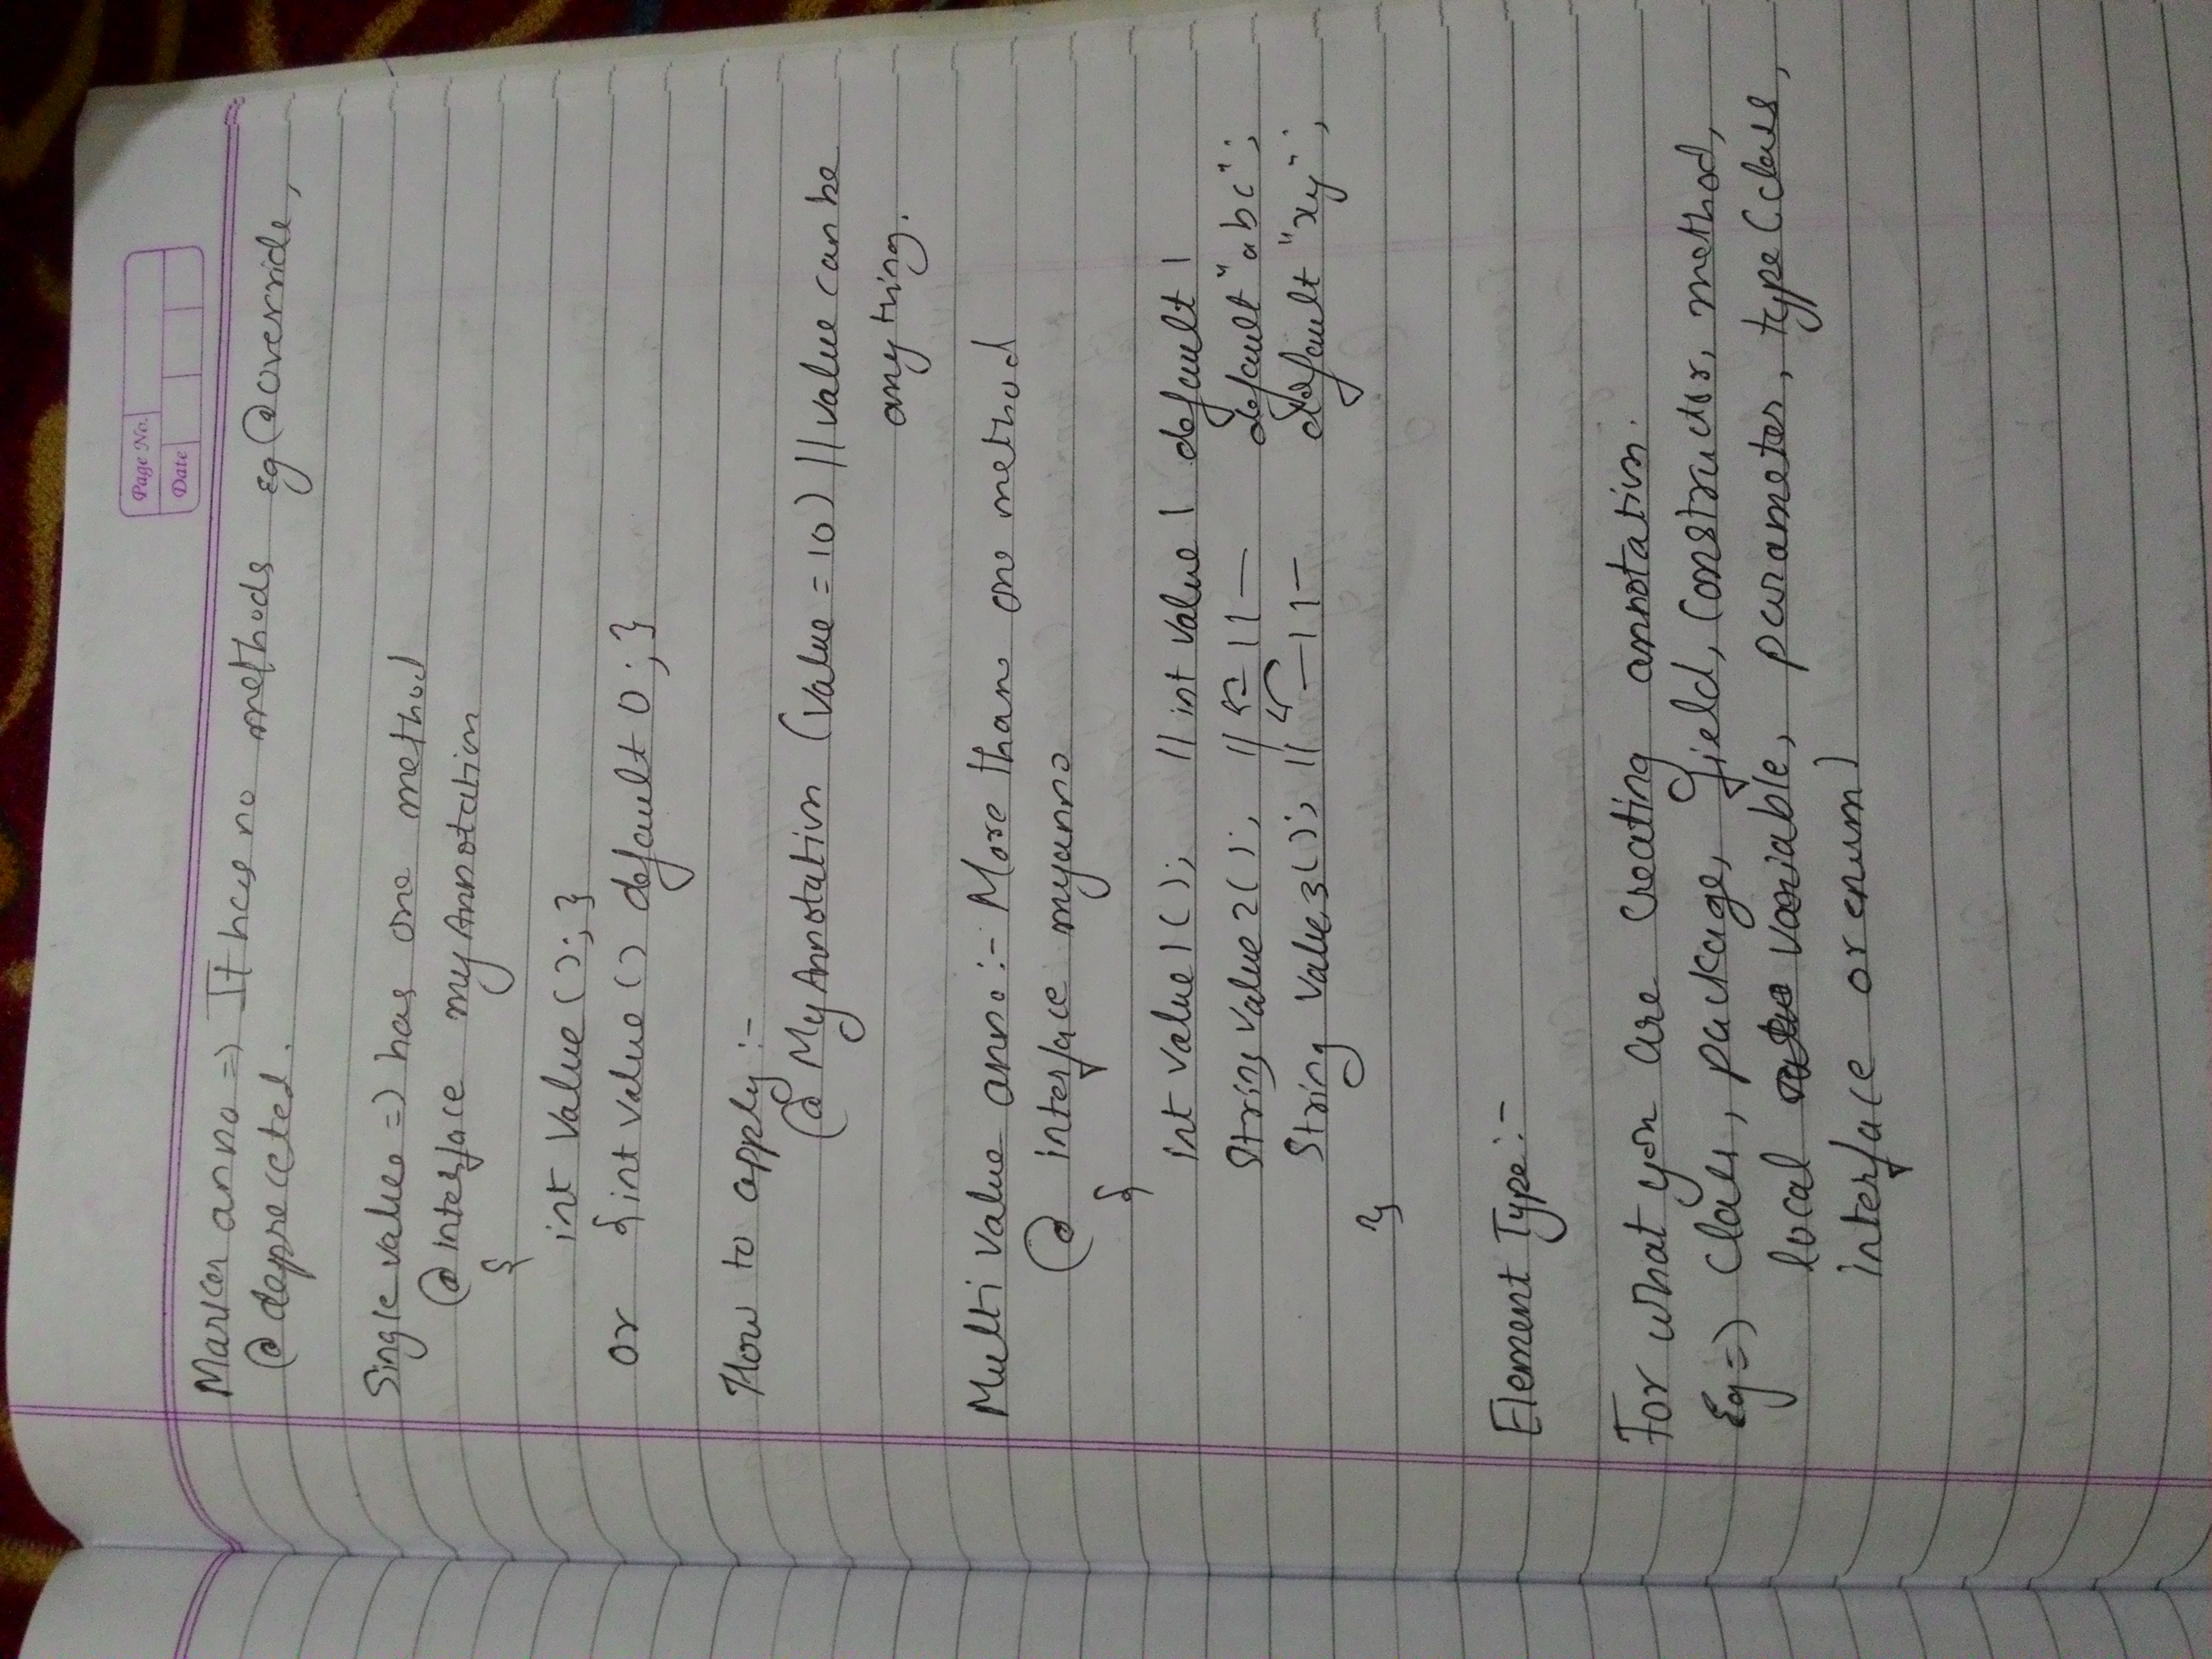 Page No.
Date
Marker anno => It has no methods eg @override,
@depreceted.
Single value => has one method
@interface myAnnotation
{
int Value(); }
or {int value() default 0; }
How to apply :-
@MyAnnotation (Value = 10) // value can be
anything.
Multi Value anno :- More than one method
@ interface myanno
{
int value1(); // int value 1 default 1
String value2(); // -11- default "abc";
String value3(); // -11- default "xy";
}
Element Type :-
For what you are creating annotation.
Eg => Class, package, field, constructor, method,
local variable, parameter, type (class,
interface or enum)